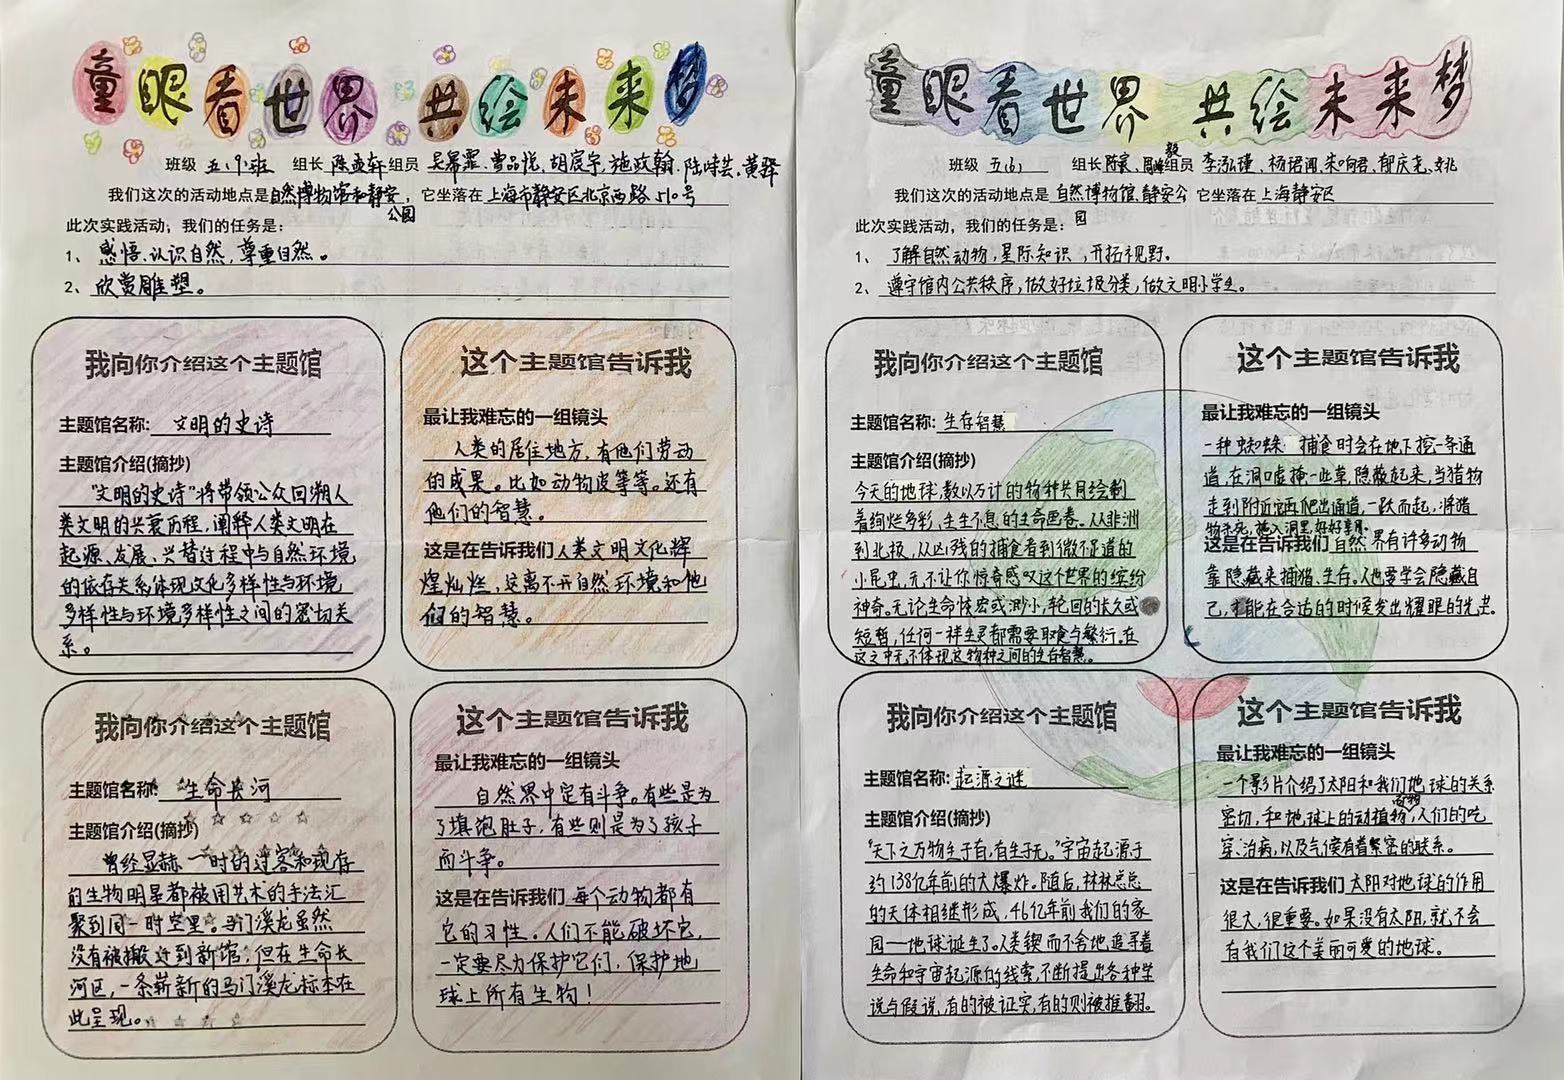 童眼看世界 共绘未来梦
班级 五(9)班 组长 陈奕轩 组员 吴幂霏、曹品悦、胡宸宇、施政翰、陆时芸、黄骅
我们这次的活动地点是自然博物馆和静安公园,它坐落在上海市静安区北京西路510号
此次实践活动,我们的任务是:
1、感悟、认识自然,尊重自然。
2、欣赏雕塑。
我向你介绍这个主题馆
主题馆名称:文明的史诗
主题馆介绍(摘抄)
“文明的史诗”将带领公众回溯人
类文明的兴衰历程,阐释人类文明在
起源、发展、兴替过程中与自然环境
的依存关系体现文化多样性与环境
多样性与环境多样性之间的密切关
系。
这个主题馆告诉我
最让我难忘的一组镜头
人类的居住地方,有他们劳动
的成果。比如动物皮等等。还有
他们的智慧。
这是在告诉我们人类文明文化辉
煌灿烂,这离不开自然环境和他
们的智慧。
我向你介绍这个主题馆
主题馆名称:生命长河
主题馆介绍(摘抄)
曾经显赫一时的过客和现存
的生物明星都被用艺术的手法汇
聚到同一时空里。马门溪龙虽然
没有被搬迁到新馆;但在生命长
河区,一条崭新的马门溪龙标本在
此呈现。
这个主题馆告诉我
最让我难忘的一组镜头
自然界中定有斗争。有些是为
了填饱肚子,有些则是为了孩子
而斗争。
这是在告诉我们每个动物都有
它的习性。人们不能破坏它,
一定要尽力保护它们,保护地
球上所有生物!
童眼看世界 共绘未来梦
班级 五(6) 组长 组员 李泓瑾、杨珺闻、朱
我们这次的活动地点是自然博物馆、静安公园 它坐落在上海静安区
此次实践活动,我们的任务是:
1、了解自然动物,星际知识,开拓视野。
2、遵守馆内公共秩序,做好垃圾分类,做文明小学生。
我向你介绍这个主题馆
主题馆名称:生存智慧
主题馆介绍(摘抄)
今天的地球,数以万计的物种共同绘制
着绚烂多彩,生生不息的生命画卷。从非洲
到北极,从凶残的捕食者到微不足道的
小昆虫,无不让你惊奇感叹这个世界的缤纷
神奇。无论生命体宏或渺小,轮回的长久或
短暂,任何一样生灵都需要取食与繁衍,在
这之中无不体现这物种之间的生存智慧。
这个主题馆告诉我
最让我难忘的一组镜头
一种蜘蛛:捕食时会在地下挖一条通
道,在洞口虚掩一些草,隐蔽起来,当猎物
走到附近它再爬出通道,一跃而起,将猎
物杀死,拖入洞里,好好享用。
这是在告诉我们自然界有许多动物
靠隐藏来捕猎、生存。人也要学会隐藏自
己,才能在合适的时候发出耀眼的光芒。
我向你介绍这个主题馆
主题馆名称:起源之谜
主题馆介绍(摘抄)
“天下之万物生于有,有生于无。”宇宙起源于
约138亿年前的大爆炸。随后,林林总总
的天体相继形成,46亿年前我们的家
园—地球诞生了。人类锲而不舍地追寻着
生命和宇宙起源的线索,不断提出各种学
说与假说,有的被证实,有的则被推翻。
这个主题馆告诉我
最让我难忘的一组镜头
一个影片介绍了太阳和我们地球的关系
密切,和地球上的动植物,人们的吃
穿、治病,以及气候有着紧密的联系。
这是在告诉我们太阳对地球的作用
很大,很重要。如果没有太阳,就不会
有我们这个美丽可爱的地球。